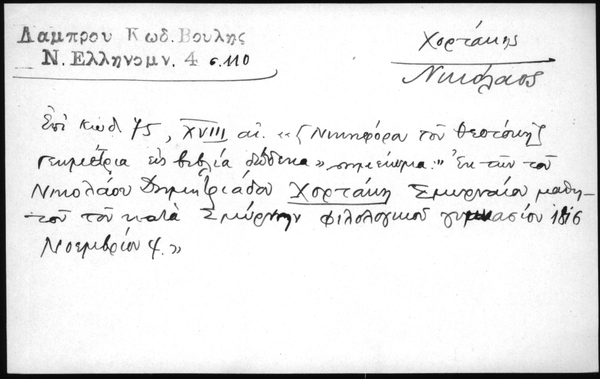 Λαμπρου Κωδ. Βουλης
Ν. Ελληνομν. 4 σ. 110
Χορτάκης
Νικόλαος
Επί κωδ 75, XVIII αι. «[Νικηφόρου του Θεοτόκη]
Γεωμετρία εις βιβλία δώδεκα» σημείωμα: "Εκ των του
Νικολάου Δημητριάδου Χορτάκη Σμυρναίου μαθη-
τού του κατά Σμύρνην φιλολογικού γυμνασίου 1816
Νοεμβρίου 4.»